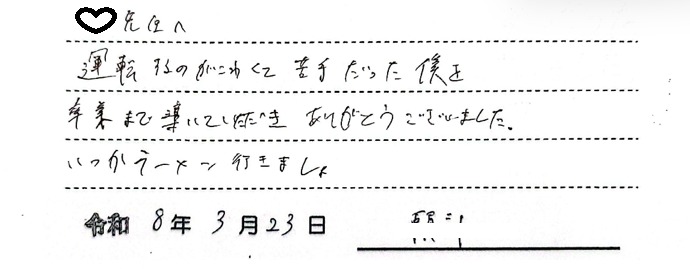 ♡先生へ
運転するのがこわくて苦手だった僕を
卒業まで導いていただきありがとうございました。
いつかラーメン行きましょ
令和 8年 3月23日